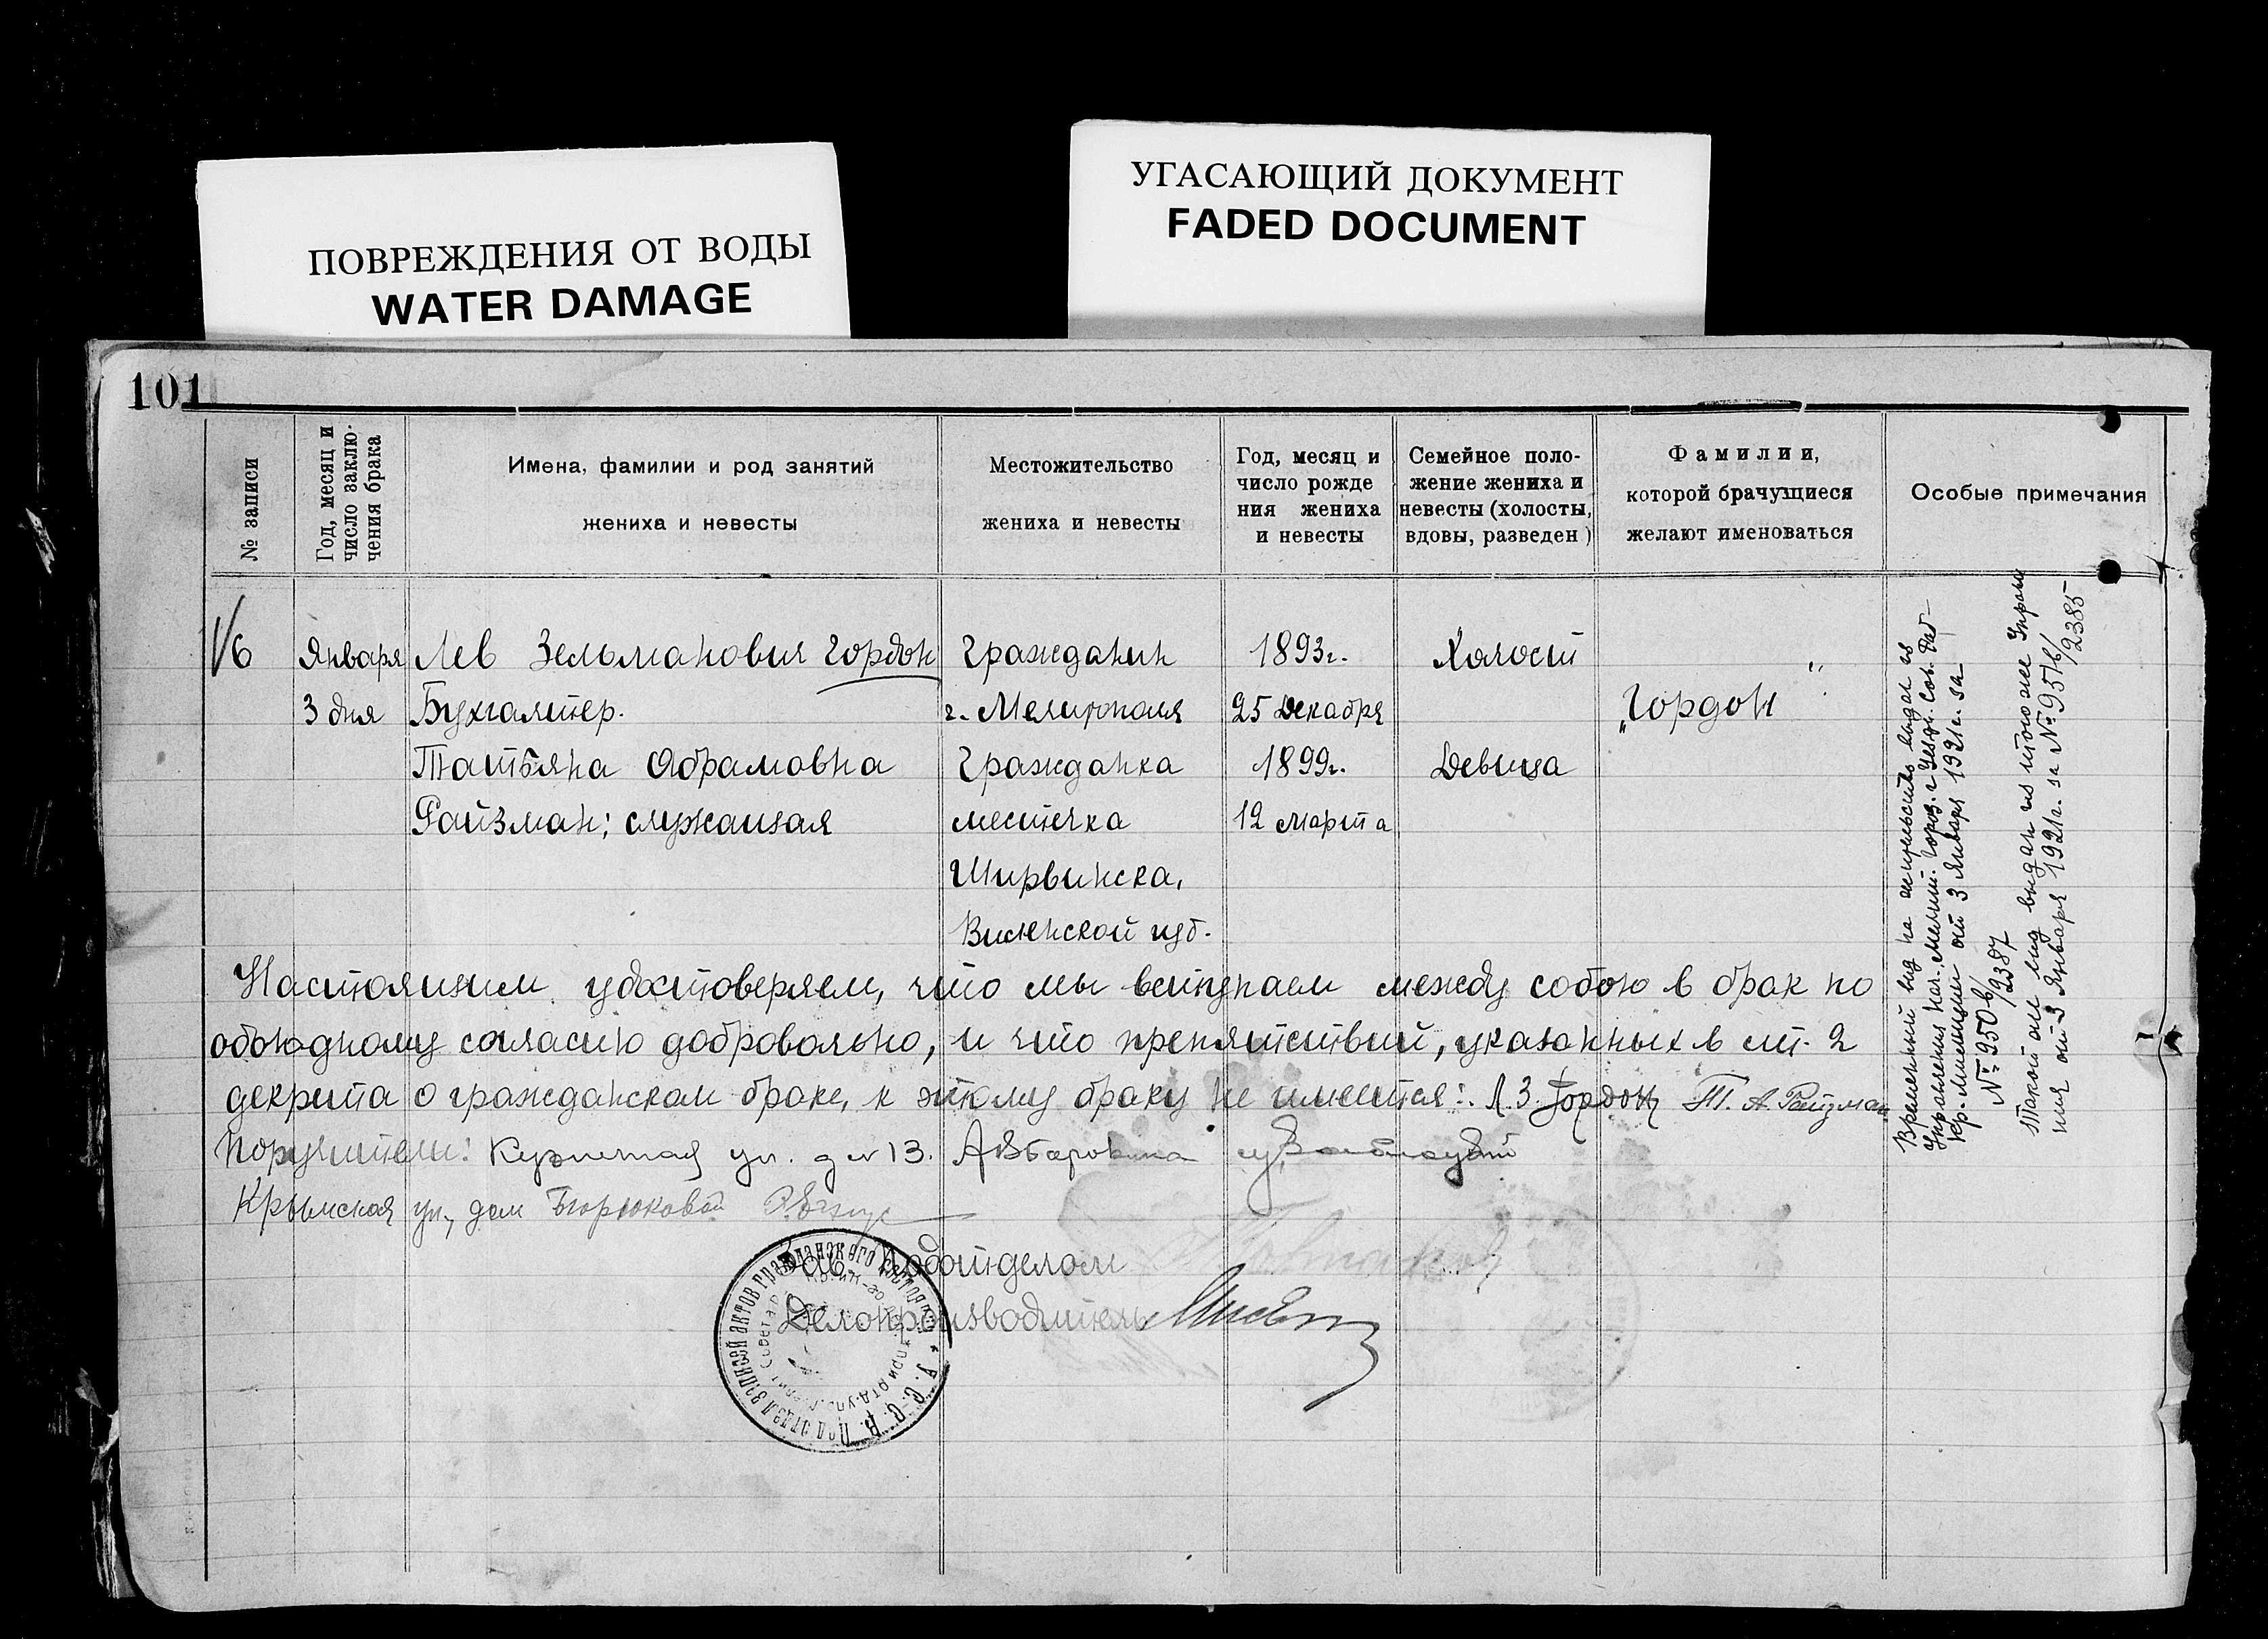 ПОВРЕЖДЕНИЯ ОТ ВОДЫ
WATER DAMAGE
УГАСАЮЩИЙ ДОКУМЕНТ
FADED DOCUMENT
101
№ записи
Год, месяц и
число заклю-
чения брака
Имена, фамилии и род занятий
жениха и невесты
Местожительство
жениха и невесты
Год, месяц и
число рожде
ния жениха
и невесты
Семейное поло-
жение жениха и
невесты (холосты,
вдовы, разведен)
Фамилии,
которой брачущиеся
желают именоваться
Особые примечания
Января
3 дня
Лев Зельманович Гордон
Бухгалтер.
Татьяна Абрамовна
Райзман; служащая
Гражданин
г. Мелитополя
Гражданка
местечка
Ширвинска,
Виленской губ.
1893г.
25 Декабря
1899г.
12 марта
Холост
Девица
„Гордон"
Временный вид на жительство выдан из
Управления 3 Января 1921г. за
№ 950б/2387
Такой же вид выдан из того же Управле
ния от 3 Января 1921г. за № 951б/2385
Настоящим удостоверяем, что мы вступаем между собою в брак по
обоюдному согласию добровольно, и что препятствий, указанных в ст. 2
декрета о гражданском браке, к этому браку не имеется: Л. З. Гордон Т. А. Райзман
Поручители: Кузнечная ул. д № 13.
Крымская ул., дом Бюрюковой
Зав. Подотделом
Делопроизводитель
Подотдел записей актов гражданского
У. С. С. Р.